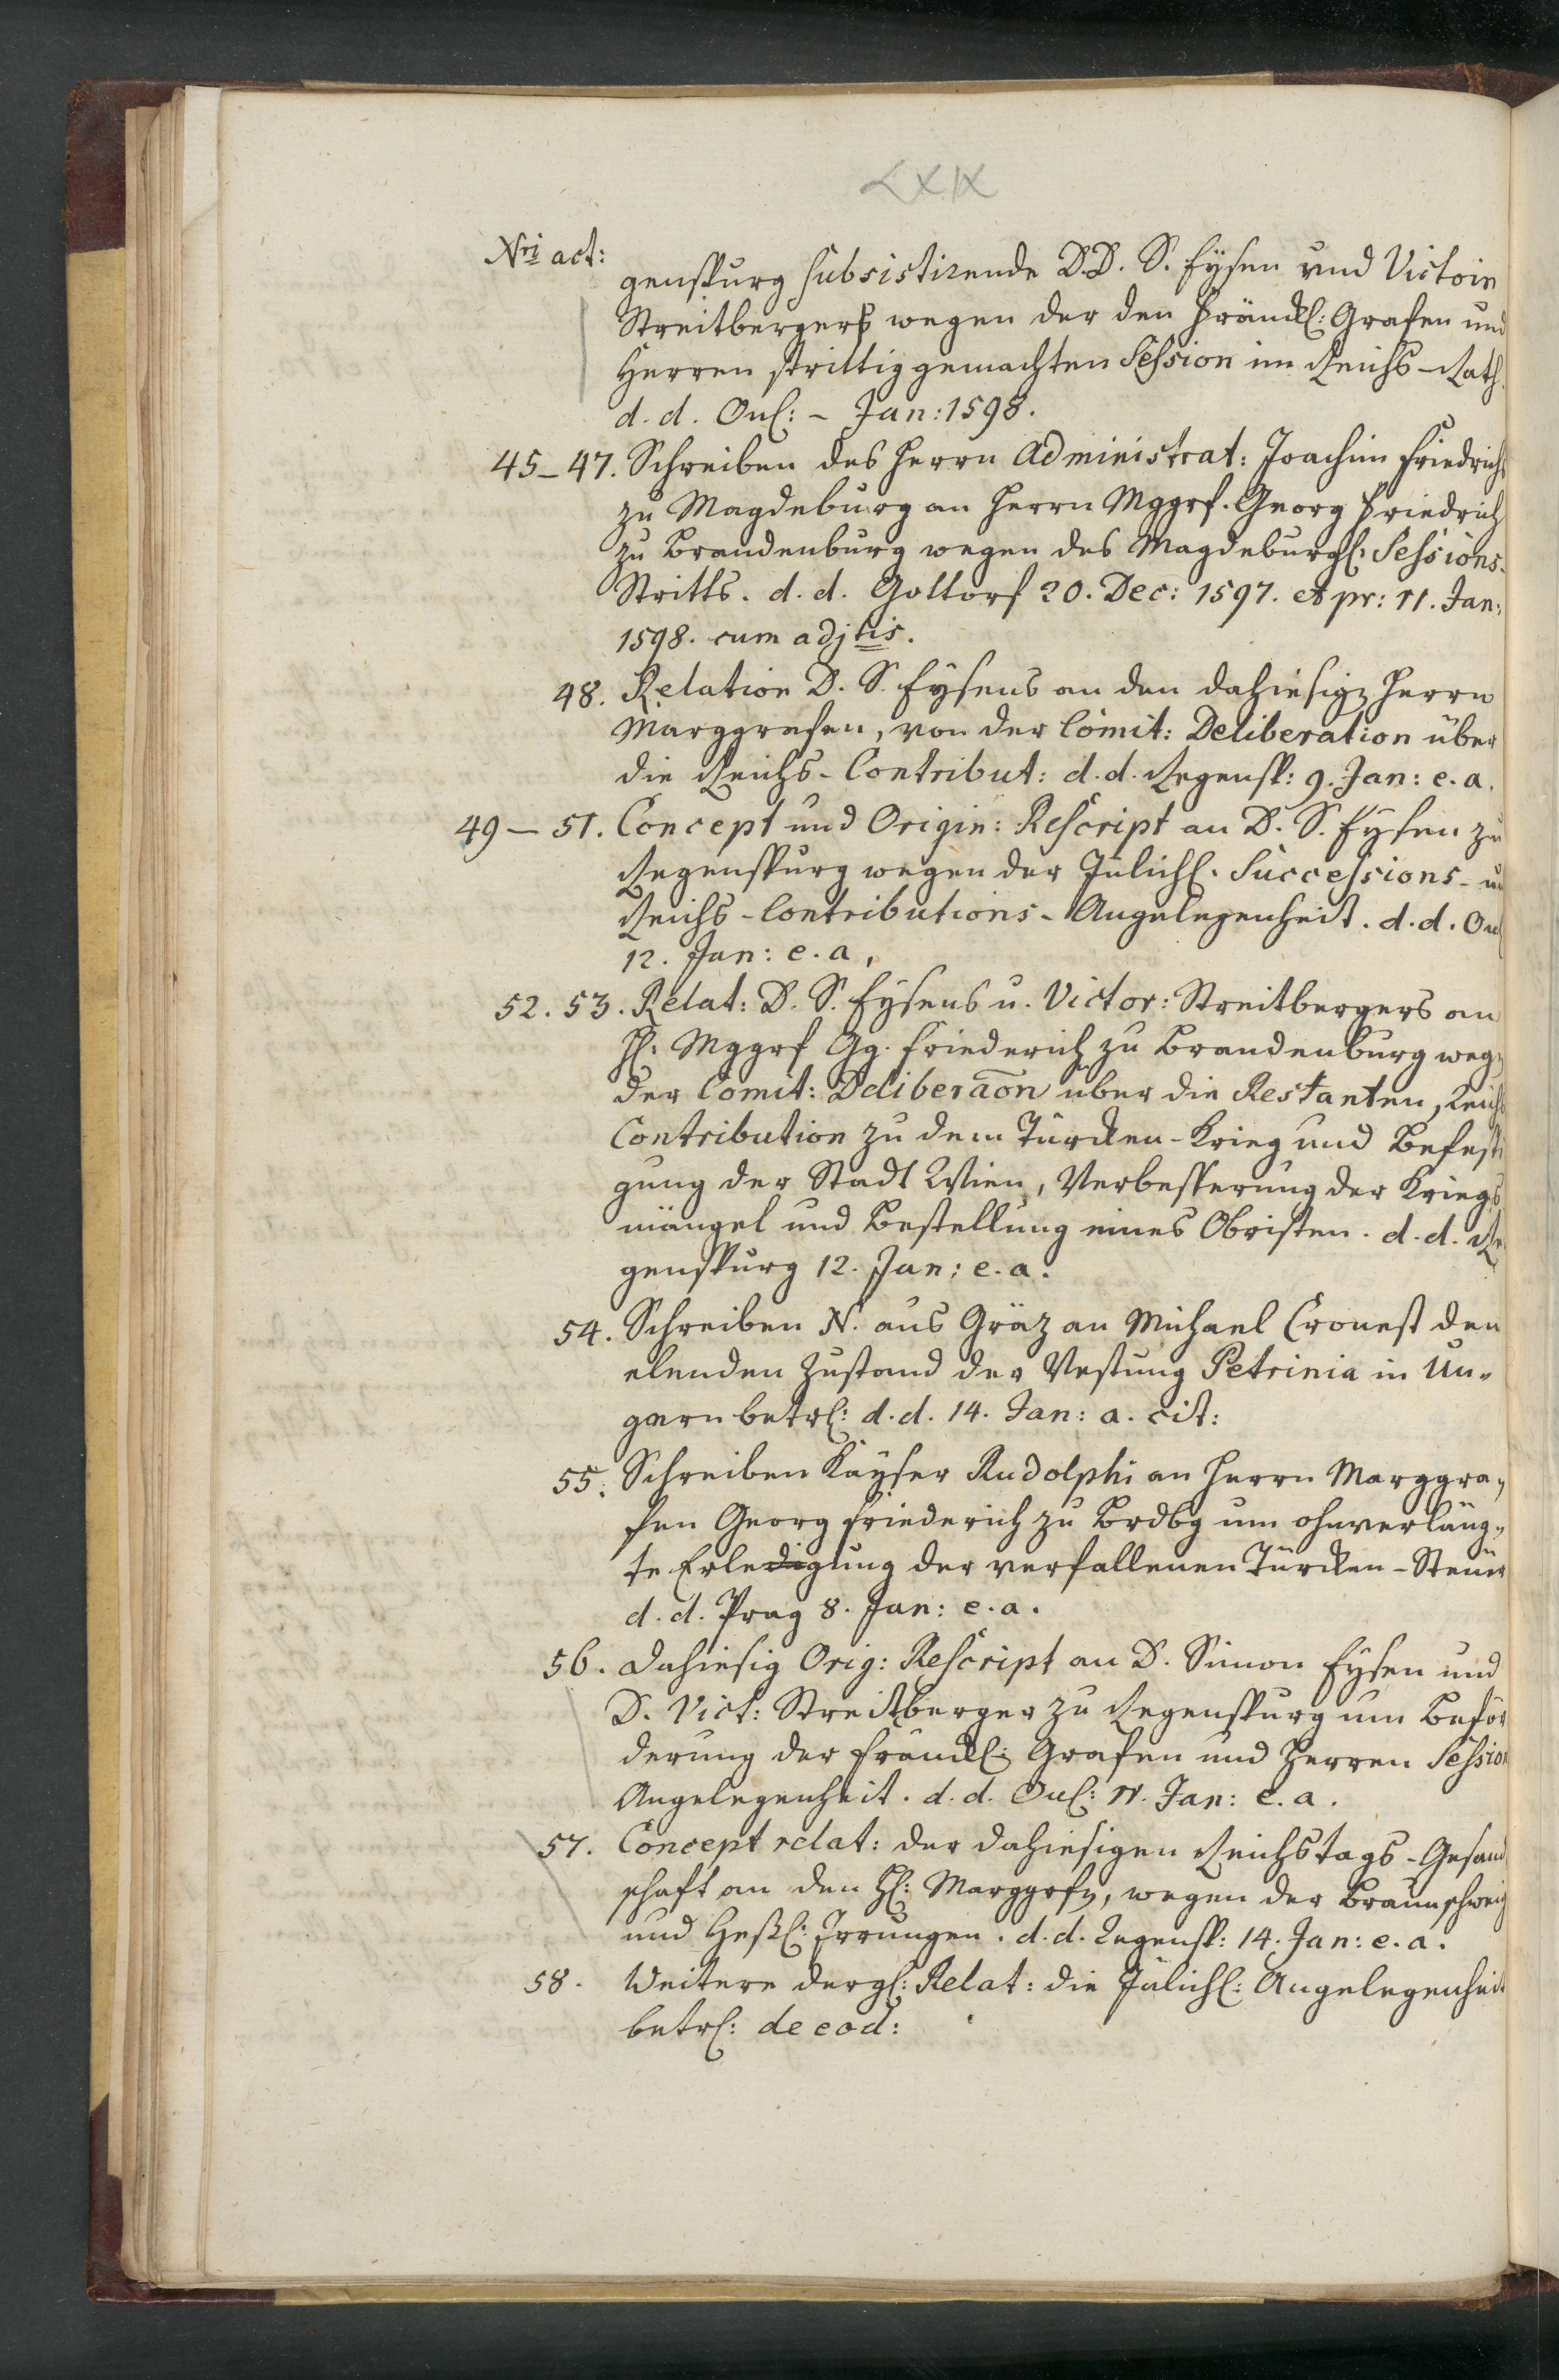 LXIX
Nri act:
genspurg subsistirende D.D. S. Eysen und Victorin
Streitbergers wegen der den Fränckl: Grafen und
Herren strittig gemachten Session im Reichs-Rath.
d. d. Onl: - Jan: 1598.
45-47. Schreiben des Herrn Administrat: Joachim Friedrichs
zu Magdeburg an Herrn Mggrf. Georg Friedrich
zu Brandenburg wegen des Magdeburgl: Sessions-
Stritts. d. d. Gottorf 20. Dec: 1597. et pr: 11. Jan:
1598. cum adjtis.
48. Relation D. S. Eysens an den dahiesign Herrn
Marggrafen, von der Comit: Deliberation über
die Reichs-Contribut: d. d. Regensp: 9. Jan: e. a.
49-51. Concept und Origin: Rescript an D. S. Eysen zu
Regenspurg wegen der Jülichl. Successions- u
Reichs-Contributions-Angelegenheit. d. d. Onl
12. Jan: e. a.
52. 53. Relat: D. S. Eysens u. Victor: Streitbergers an
H: Mggrf Gg. Friederich zu Brandenburg wegn
der Comit: Deliberaon über die Restanten, Reichs
Contribution zu dem Türcken-Krieg und Befesti
gung der Stadt Wien, Verbesserung der Kriegs
mängel und Bestellung eines Obristen. d. d. Re
genspurg 12. Jan: e. a.
54. Schreiben N. aus Gräz an Michael Cronest den
elenden Zustand der Vestung Petrinia in Un-
garn betrl: d. d. 14. Jan: a. cit:
55. Schreiben Kayser Rudolphi an Herrn Marggra-
fen Georg Friederich zu Brdbg um ohnverläng-
te Erledigung der verfallenen Türcken-Steuer
d. d. Prag 8. Jan: e. a.
56. Dahiesig Orig: Rescript an D. Simon Eysen und
D. Vict: Streitberger zu Regenspurg um Beför
derung der Fränckl: Grafen und Herren Session
Angelegenheit. d. d. Onl: 11. Jan: e. a.
57. Concept relat: der dahiesigen Reichstags-Gesand
schaft an den H: Marggrfn, wegen der Braunschweig
und Heßl: Irrungen. d. d. Regensp: 14. Jan: e. a.
58. Weitere dergl: Relat: die Jülichl: Angelegenheit
betrl: de eod: